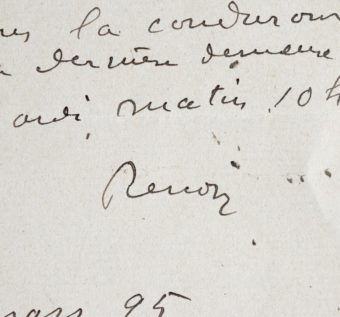 la conduirons
dernière demeure
matin 10 h
Renoir
mars 95